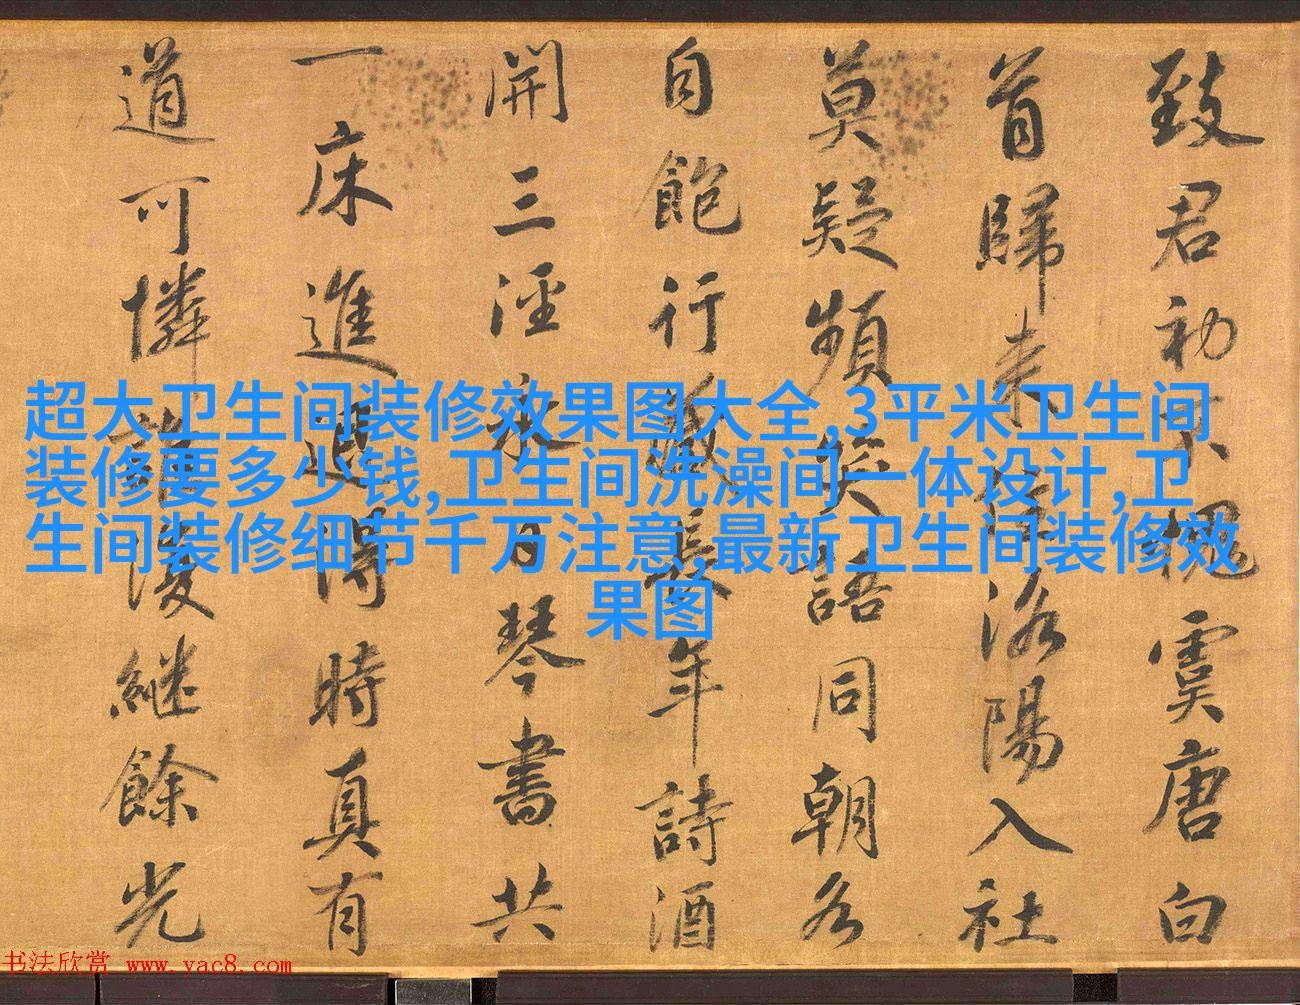 致君初不愧虞唐白
首歸来住洛陽入社
莫疑頻笑語同朝各
自飽行藏長年詩酒
開三涇永日琴書共
一床進退得時真有
道可憐誰復継餘光
超大卫生间装修效果图大全,3平米卫生间
装修要多少钱,卫生间洗澡间一体设计,卫
生间装修细节千万注意,最新卫生间装修效
果图
书法欣赏 www.yac8.com